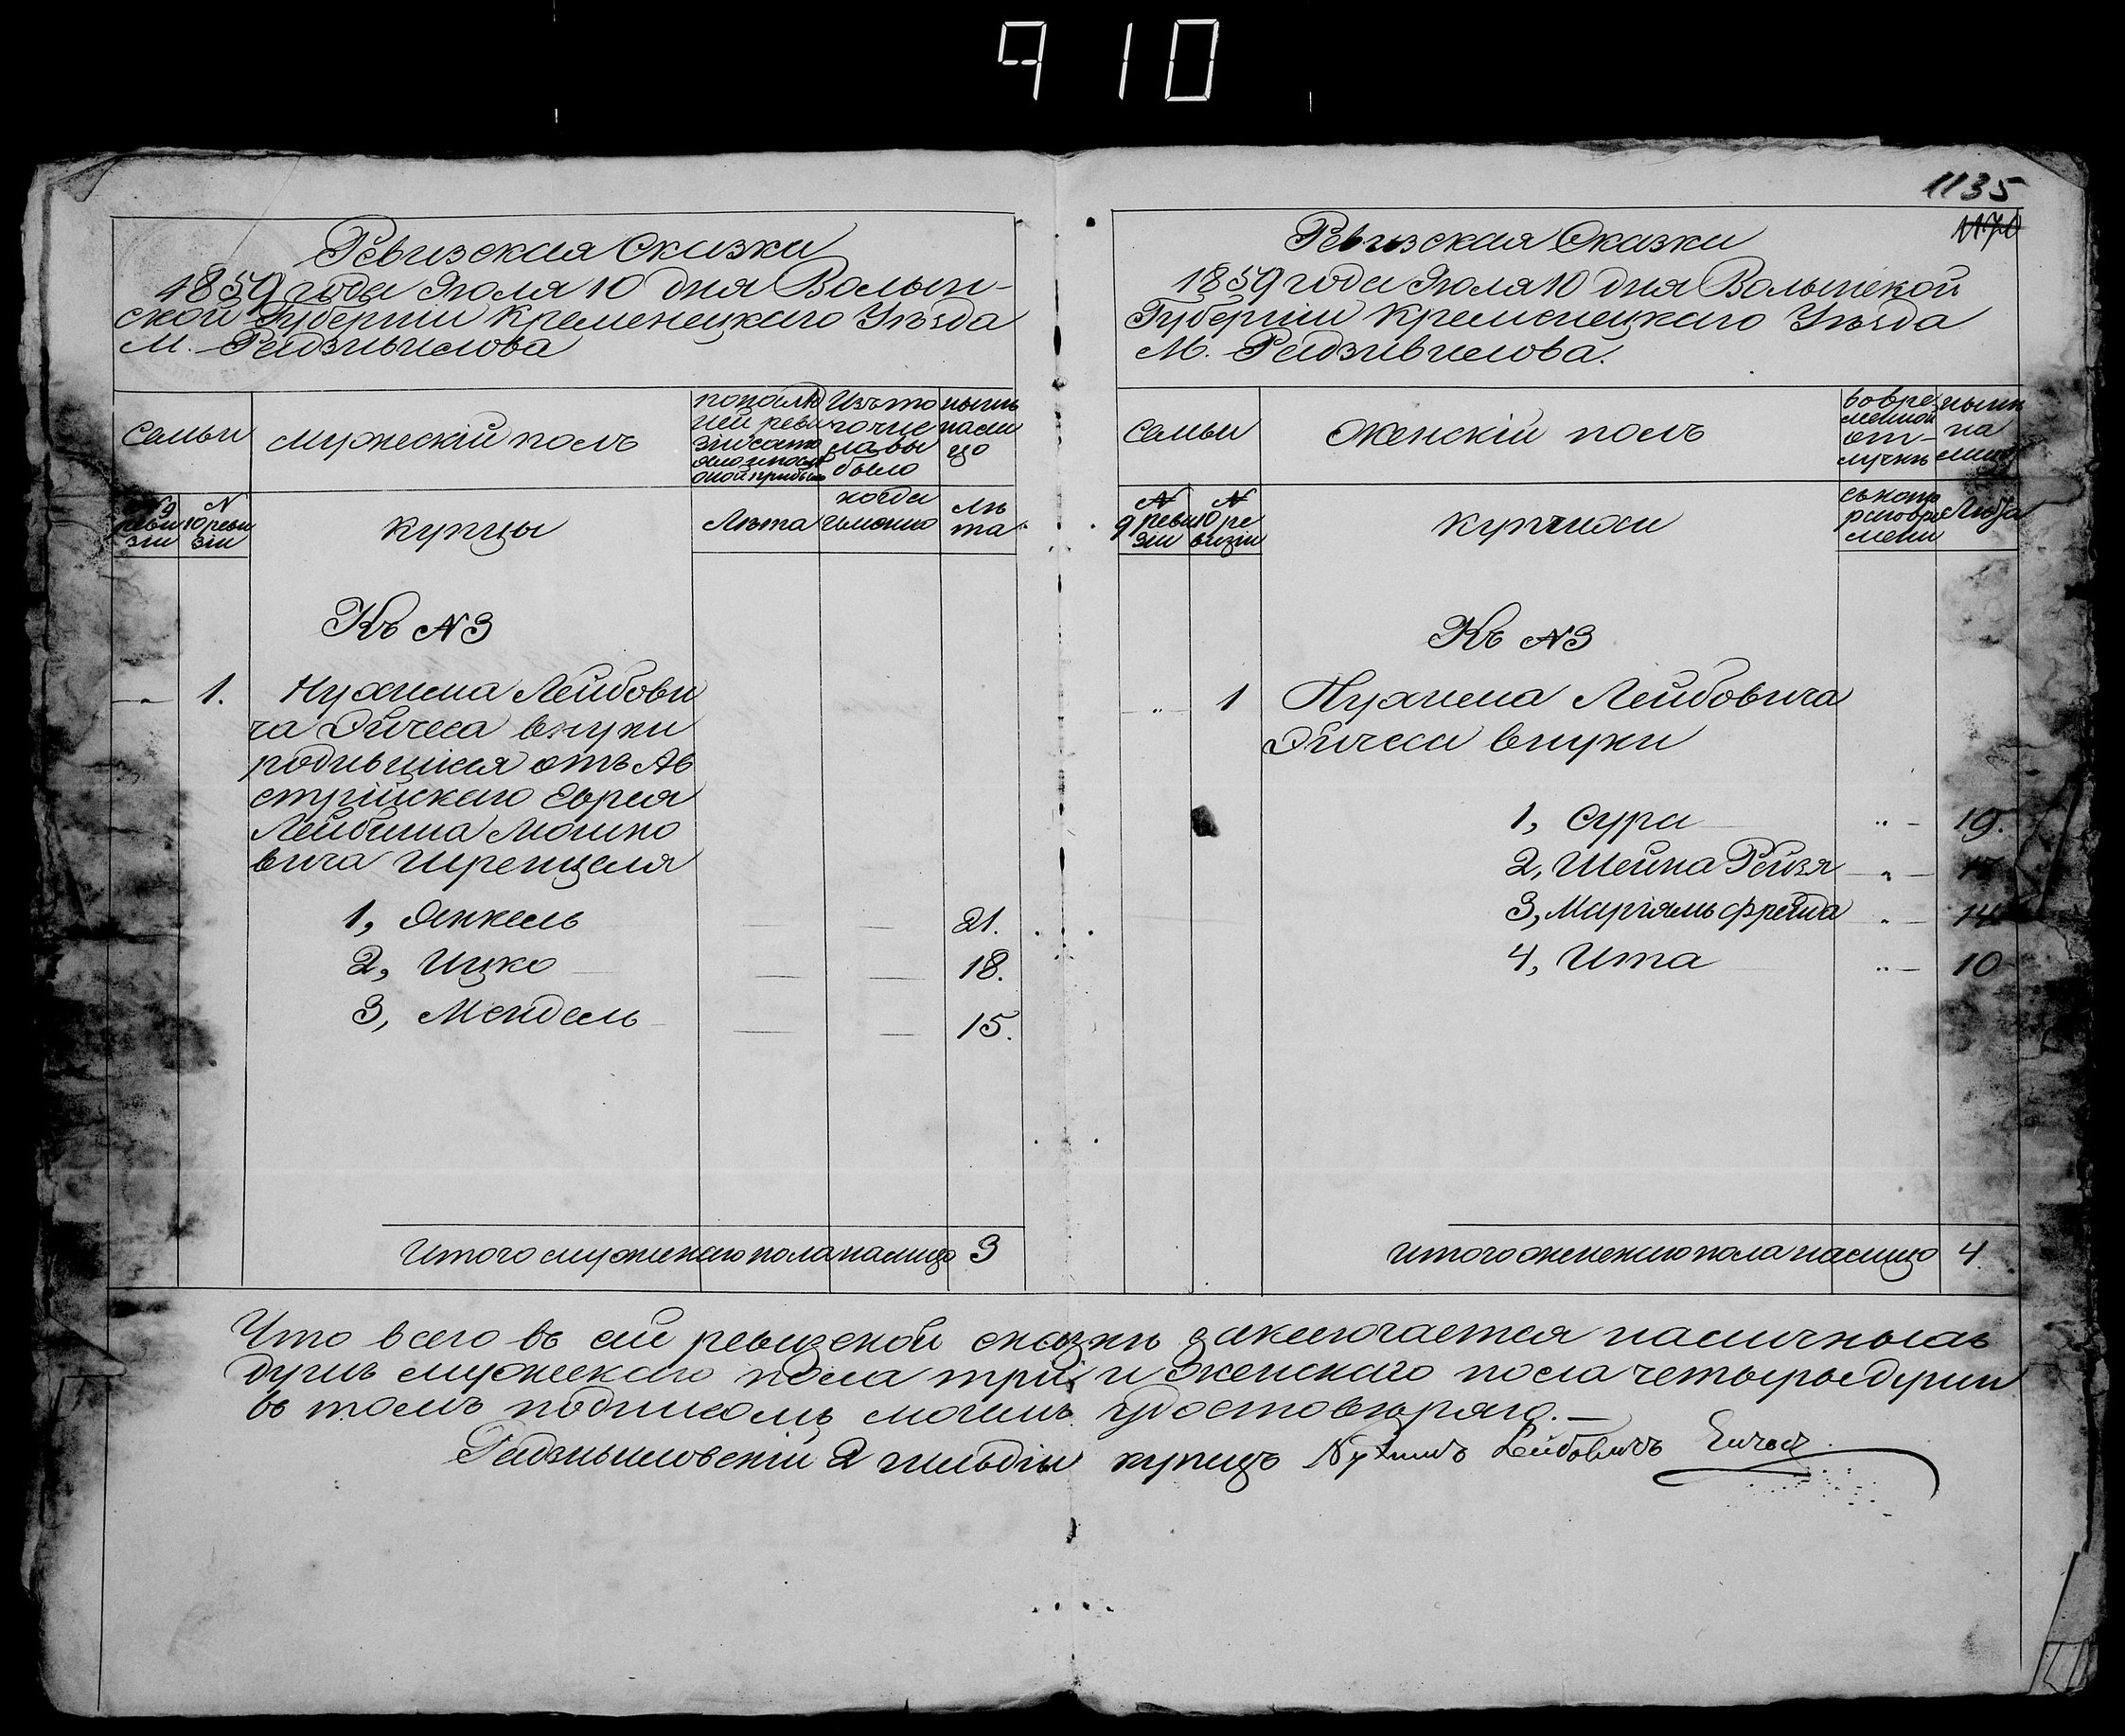 910
1135
Ревизская Сказка
1859 года Июля 10 дня Волын-
ской Губернии Кременецкаго Уѣзда
М. Радзивилова
Семьи
мужескій полъ
по послѣд
ней реви
зіи состо
яло и послѣ
оной прибыло
Изъ то
го чис
ла вы
было
нынѣ
на ли
цо
N 9
реви
зіи
N
10 реви
зіи
купцы
Лѣта
когда
именно
Лѣ
та
Къ N 3
1.
Нухима Лейбови
ча Эйчеса внуки
родившіеся отъ Ав
стрійскаго Еврея
Лейбиша Мошко
вича Шренцеля
1, Янкель 21.
2, Ицко 18.
3, Мендель 15.
Итого мужескаго пола налицо 3
Ревизская Сказка
1859 года Июля 10 дня Волынской
Губерніи Кременецкаго Уѣзда
М. Радзивилова.
Семьи
Женскій полъ
во вре
менной
от-
лучкѣ
нынѣ
на
лицо
N
9 реви
зіи
N
10 ре
визіи
купчихи
съ кото
раго вре
мени
Лѣта
Къ N 3
1
Нухима Лейбовича
Эйчеса внуки
1, Сура 19.
2, Шейна Рейзя 17
3, Маріямъ Фрейда 14
4, Ита 10
Итого женскаго пола налицо 4.
Что всего въ сей ревизской сказкѣ заключается наличныхъ
душъ мужескаго пола три и женскаго пола четыре души
въ томъ подписомъ моимъ удостовѣряю.
Радзивиловскій 2 гильдіи купецъ Нухимъ Лейбовичъ